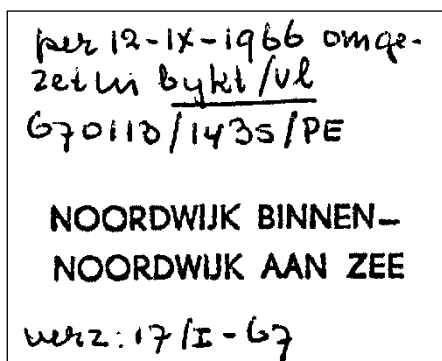 per 12-IX-1966 omge-
zet in bykt/vl
670113/1435/PE
NOORDWIJK BINNEN-
NOORDWIJK AAN ZEE
verz: 17/I-67